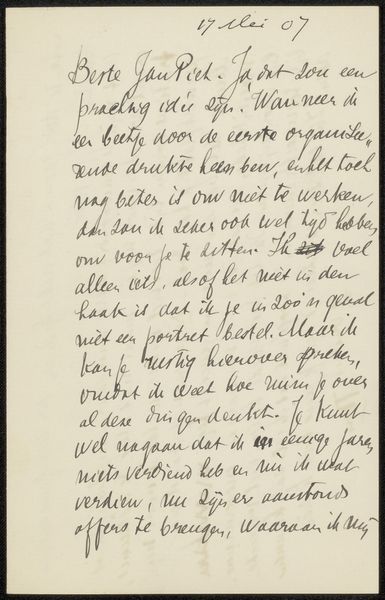 17 Mei 07
Beste Jan Piet. Ja, dat zou een
prachtig idée zijn. Wanneer ik
een beetje door de eerste organisee-
rende drukte heen ben, en het toch
nog beter is om niet te werken,
dan zou ik zeker ook wel tijd hebben
om voor je te zitten. Ik voel
alleen iets, alsof het niet in den
haak is dat ik je in zoo'n geval
niet een portret bestel. Maar ik
kan je rustig hierover spreken,
omdat ik weet hoe ruim je over
al deze dingen denkt. Je kunt
wel nagaan dat ik in eenige jaren
niets verdiend heb en nu ik wat
verdien, nu zijn er aanstonds
offers te brengen, waaraan ik mij